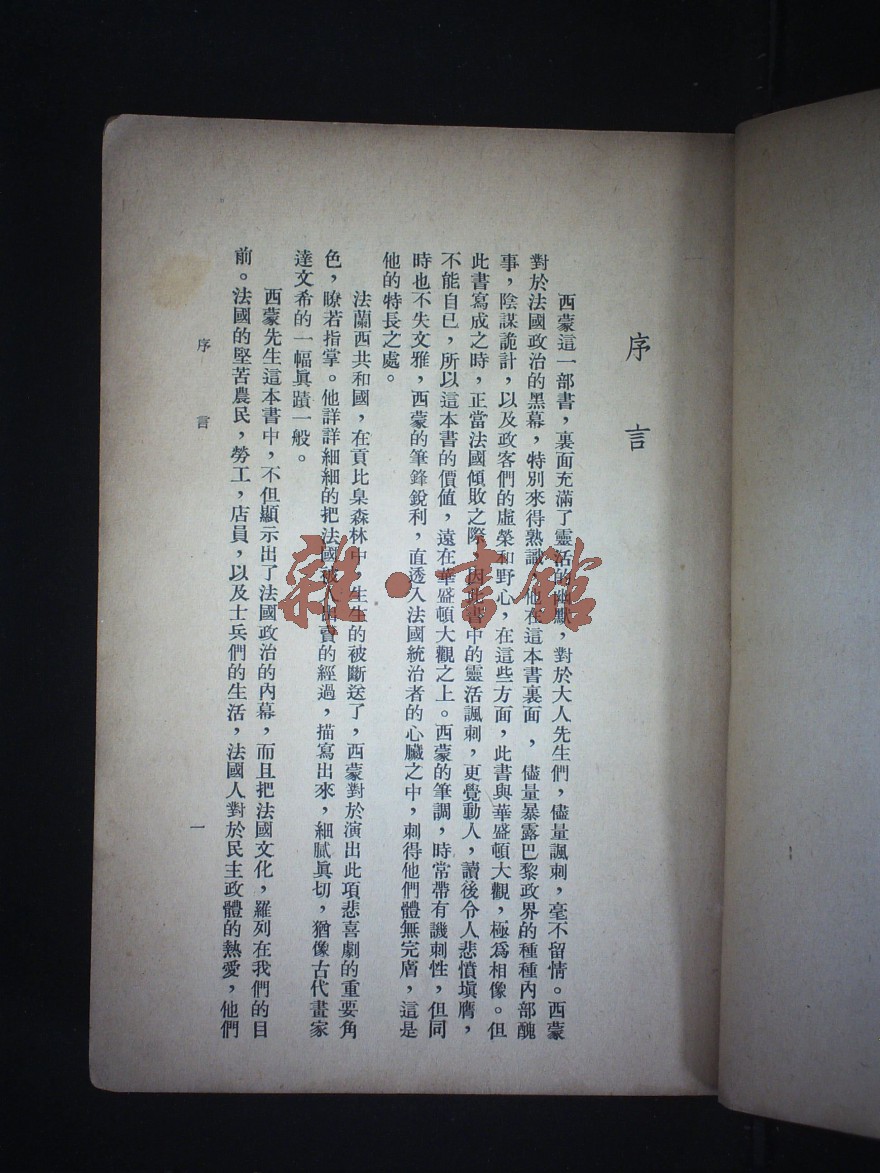 序言
西蒙這一部書，裏面充滿了靈活的幽默，對於大人先生們，儘量諷刺，毫不留情。西蒙
對於法國政治的黑幕，特別來得熟識，他在這本書裏面，儘量暴露巴黎政界的種種內部醜
事，陰謀詭計，以及政客們的虛榮和野心，在這些方面，此書與華盛頓大觀，極爲相像。但
此書寫成之時，正當法國傾敗之際，因此書中的靈活諷刺，更覺動人，讀後令人悲憤塡膺，
不能自已，所以這本書的價值，遠在華盛頓大觀之上。西蒙的筆調，時常帶有譏刺性，但同
時也不失文雅，西蒙的筆鋒銳利，直透入法國統治者的心臟之中，刺得他們體無完膚，這是
他的特長之處。
法蘭西共和國，在貢比臬森林中，生生的被斷送了，西蒙對於演出此項悲喜劇的重要角
色，瞭若指掌。他詳詳細細的把法國被人出賣的經過，描寫出來，細膩眞切，猶像古代畫家
達文希的一幅眞蹟一般。
西蒙先生這本書中，不但顯示出了法國政治的內幕，而且把法國文化，羅列在我們的目
前。法國的堅苦農民，勞工，店員，以及士兵們的生活，法國人對於民主政體的熱愛，他們
序言
一
雜·書館